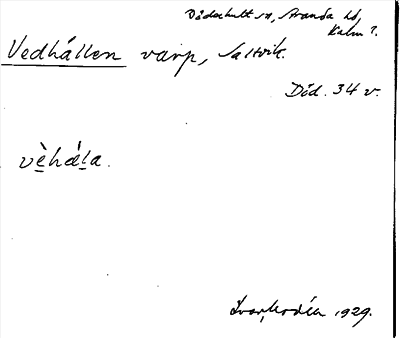 Döderhult sn, Stranda hd,
Kalm l.
Vedhällen varp, Saltvik.
Död. 34 v.
vèhä́la.
Ivar Modéer 1929.